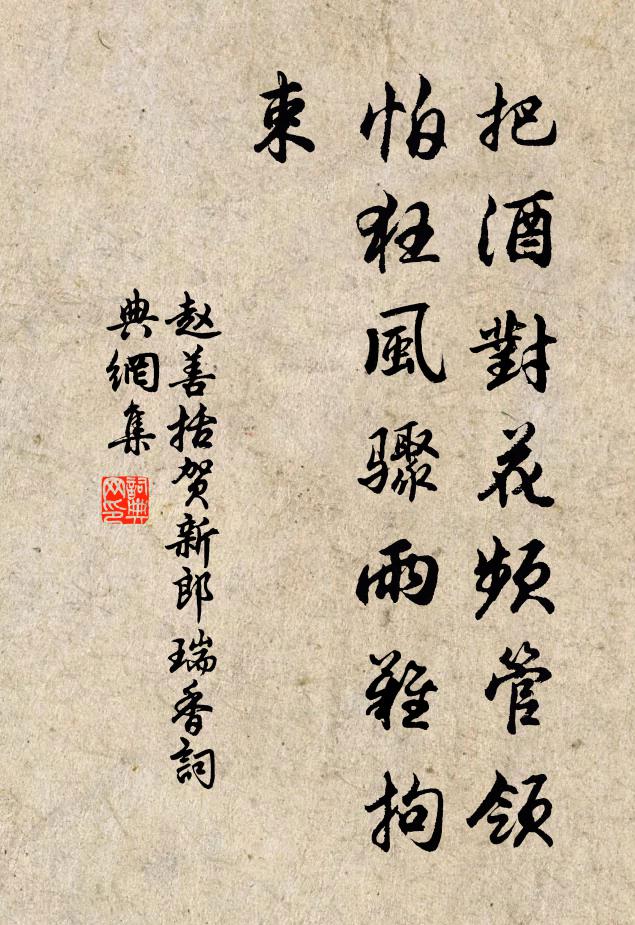 把酒對花頻管領
怕狂風驟雨難拘
束
赵善括贺新郎瑞香詞
典網集
詞典网印